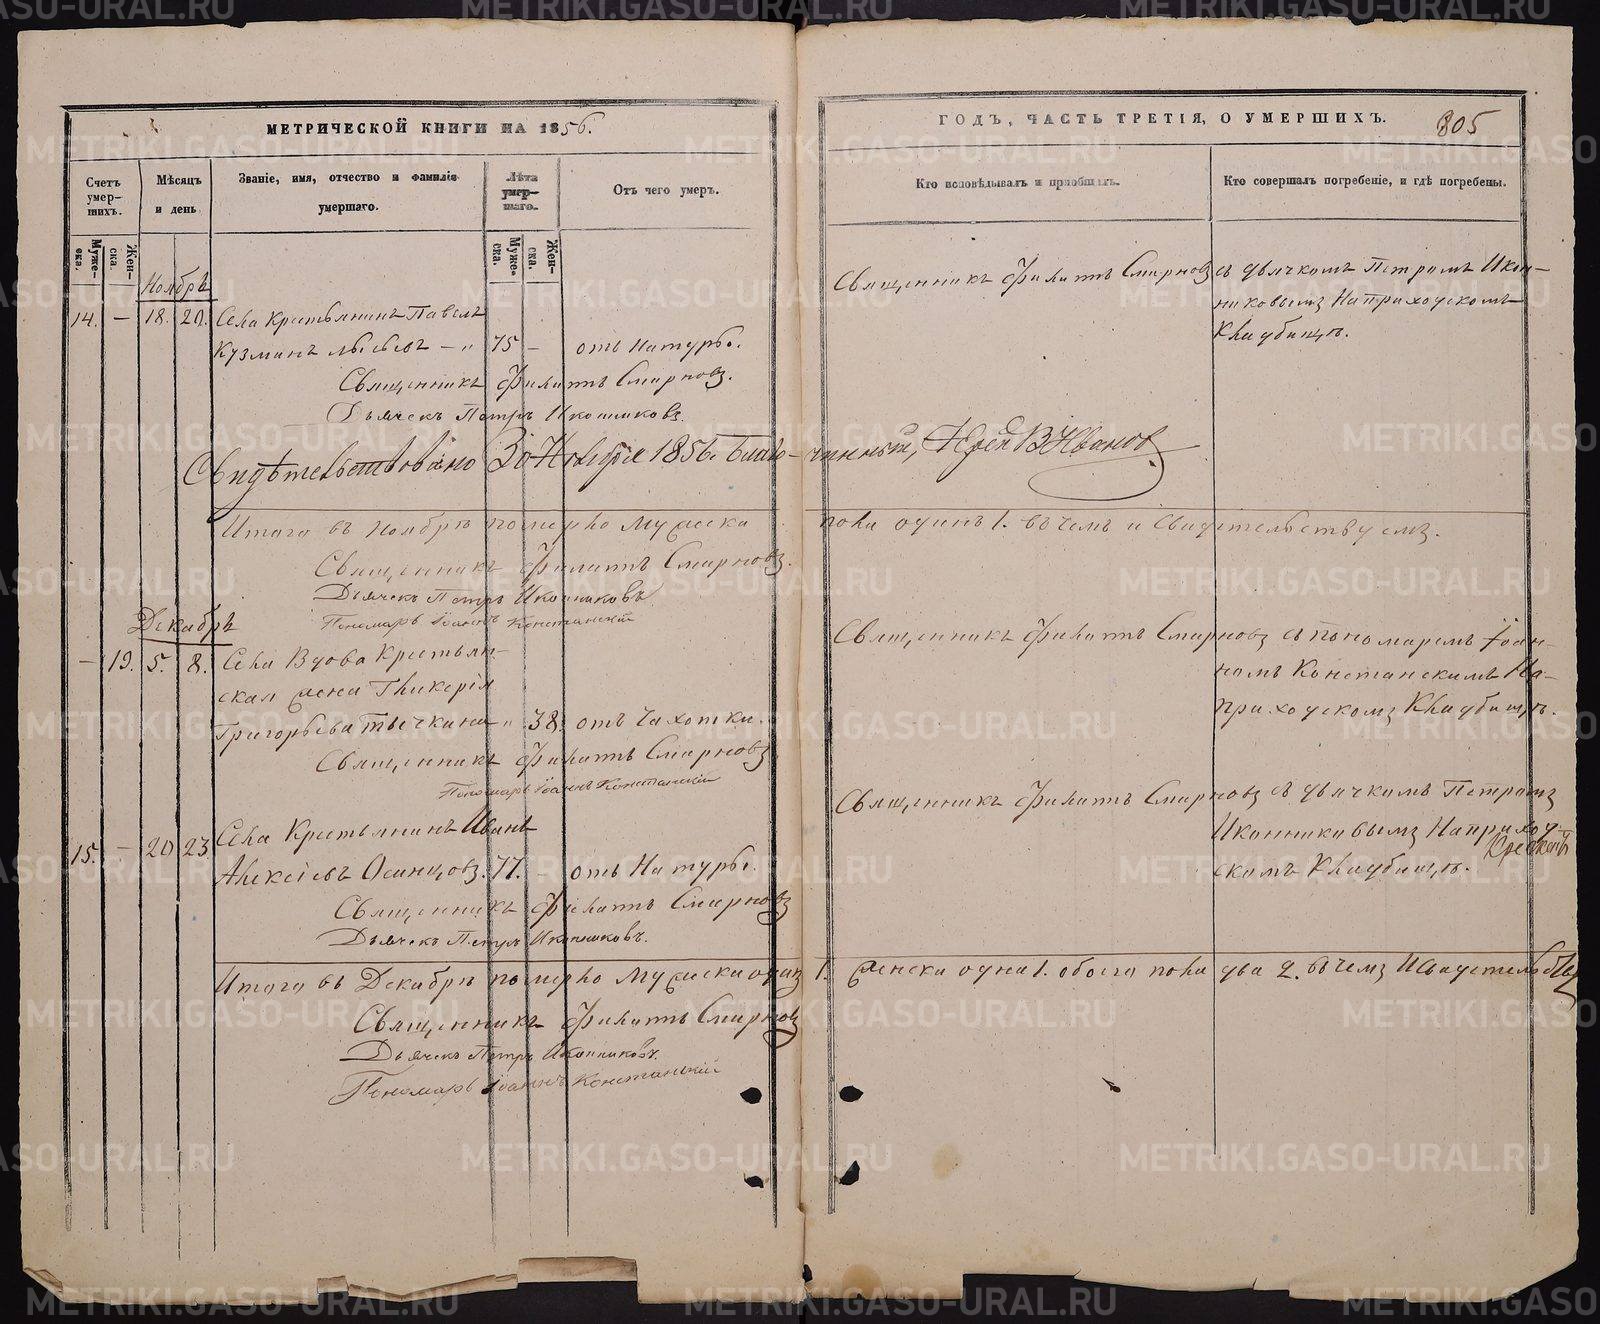 МЕТРИЧЕСКОЙ КНИГИ НА 1856.
Счетъ умер-шихъ.
Мѣсяцъ и день
Званіе, имя, отчество и фамилія умершаго.
Лѣта умер-шаго.
Отъ чего умеръ.
Муже-ска.
Жен-ска.
Муже-ска.
Жен-ска.
Ноябрь
14. — 18. 20. Села Крестьянинъ Павелъ
Кузминъ — „ 75 — отъ Натуры.
Священникъ Филатъ Смирновъ.
Дьячекъ Петръ Иконниковъ.
Свидѣтельствовано 30 Ноября 1856. Благо-
Итого въ Ноябрѣ померло Мужеска
Священникъ Филатъ Смирновъ.
Дьячекъ Петръ Иконниковъ.
Пономарь Іоаннъ Констанскій
Декабрь
— 19. 5. 8. Села Вдова Крестьян-
ская жена Гликерія
Григорьева „ 38. отъ Чахотки.
Священникъ Филатъ Смирновъ
Пономарь Іоаннъ Констанскій
15. — 20 23. Села Крестьянинъ Иванъ
Алексѣевъ Осинцовъ. 77. — отъ Натуры.
Священникъ Филатъ Смирновъ
Дьячекъ Петръ Иконниковъ.
Итого въ Декабрѣ померло Мужеска одинъ 1.
Священникъ Филатъ Смирновъ
Дьячекъ Петръ Иконниковъ.
Пономарь Іоаннъ Констанскій
ГОДЪ, ЧАСТЬ ТРЕТІЯ, О УМЕРШИХЪ.
805
Кто исповѣдывалъ и пріобщалъ.
Кто совершалъ погребеніе, и гдѣ погребены.
Священникъ Филатъ Смирновъ съ дьячкомъ Петромъ Икон-
никовымъ На приходскомъ
Кладбищѣ.
чинный, Іерей В Ивановъ
пола одинъ 1. въ чемъ и свидетельствуемъ.
Священникъ Филатъ Смирновъ съ пономаремъ Іоан-
номъ Констанскимъ На-
приходскомъ Кладбищѣ.
Священникъ Филатъ Смирновъ съ дьячкомъ Петромъ
Иконниковымъ На приход-
скомъ Кладбищѣ.
женска одна 1. обоего пола два 2. въ чемъ и Свидетельству
METRIKI.GASO-URAL.RU